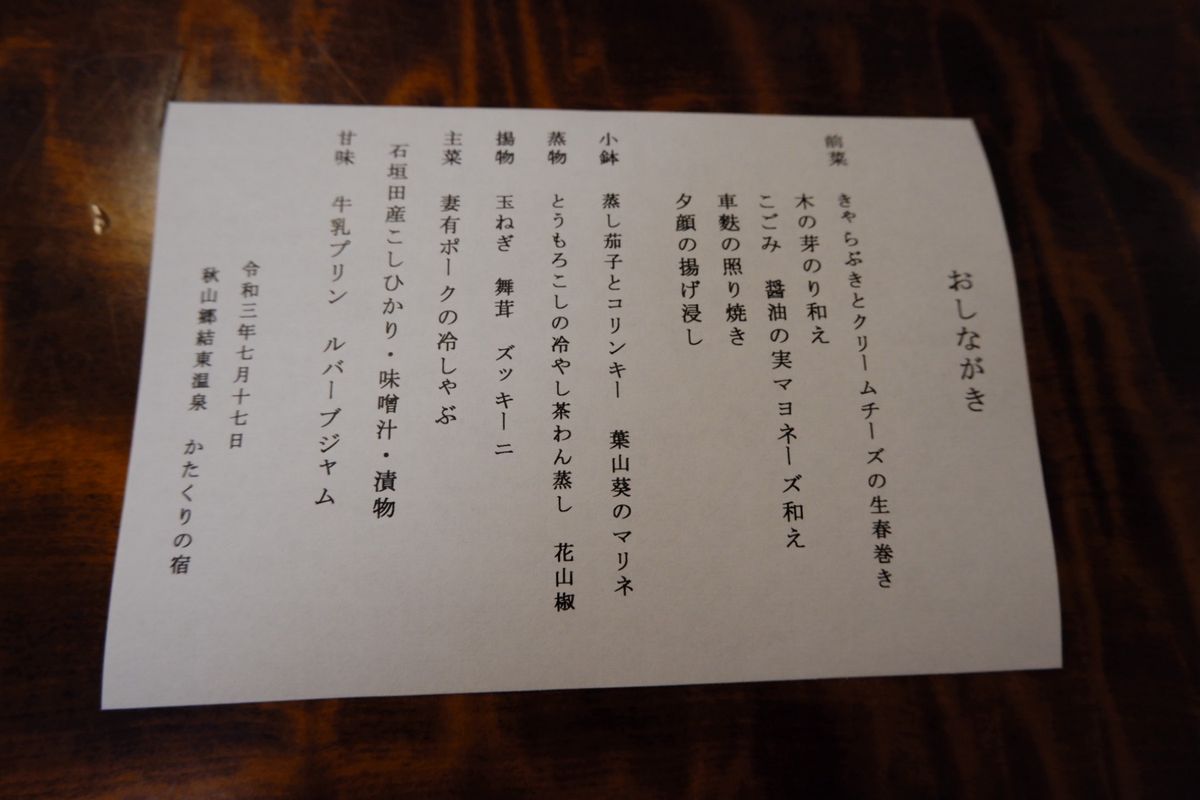 おしながき
前菜 きゃらぶきとクリームチーズの生春巻き
木の芽のり和え
こごみ 醤油の実マヨネーズ和え
車麩の照り焼き
夕顔の揚げ浸し
小鉢 蒸し茄子とコリンキー 葉山葵のマリネ
蒸物 とうもろこしの冷やし茶わん蒸し 花山椒
揚物 玉ねぎ 舞茸 ズッキーニ
主菜 妻有ポークの冷しゃぶ
石垣田産こしひかり・味噌汁・漬物
甘味 牛乳プリン ルバーブジャム
令和三年七月十七日
秋山郷結東温泉 かたくりの宿